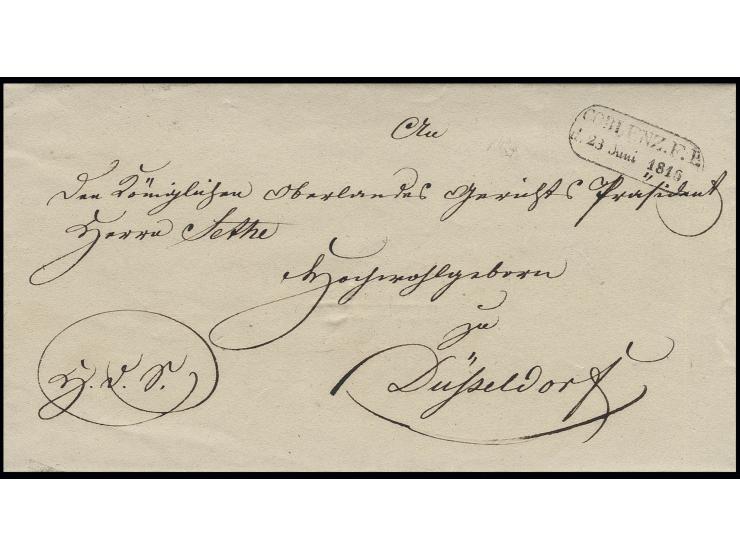 COBLENZ. F. E
d. 23 Juni 1816
An
Den Königlichen Oberlandes Gerichts Präsident
Herrn Sethe
Hochwohlgeborn
zu
H. D. S.
Düsseldorf